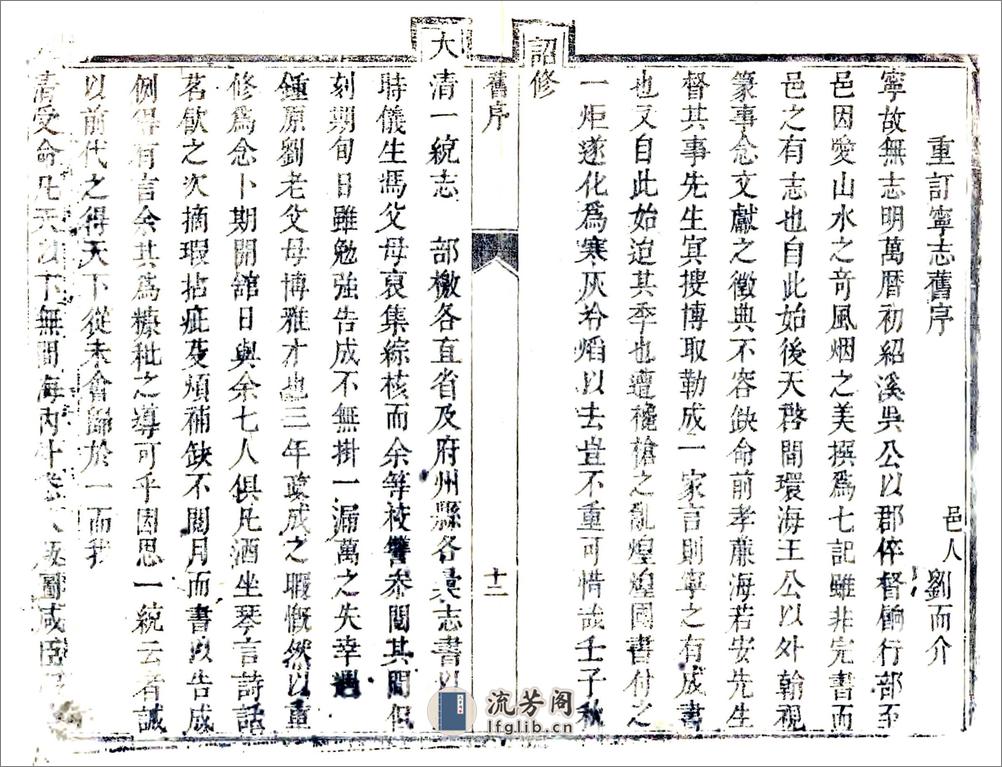 重訂寧志舊序
邑人劉而介
寧故無志明萬曆初紹溪吳公以郡倅督餉行部至
邑因愛山水之奇風烟之美撰爲七記雖非完書而
邑之有志也自此始後天啓間環海王公以外翰視
篆事念文獻之徵典不容缺命前孝亷海若安先生
督其事先生冥搜博取勒成一家言則寧之有成書
也又自此始迨其季也遭欃槍之亂煌煌國書付之
一炬遂化爲寒灰冷熖以去豈不重可惜哉壬子秋
詔修
舊序
十二
大清一統志 部檄各直省及府州縣各彚志書以
時儀生馮父母裒集綜核而余等校讐叅閱其間但
刻期旬日雖勉強告成不無掛一漏萬之失幸遇
鍾原劉老父母博雅才也三年政成之暇慨然以重
修爲念卜期開舘日與余七人俱凡酒坐琴言詩話
茗飲之次摘瑕拈疵芟煩補缺不閱月而書以告成
例得有言余其爲糠秕之導可乎因思一統云者誠
以前代之得天下從未會歸於一而我
清受命凡天以下無間海內外 圖咸臣
流芳阁
lfglib.com